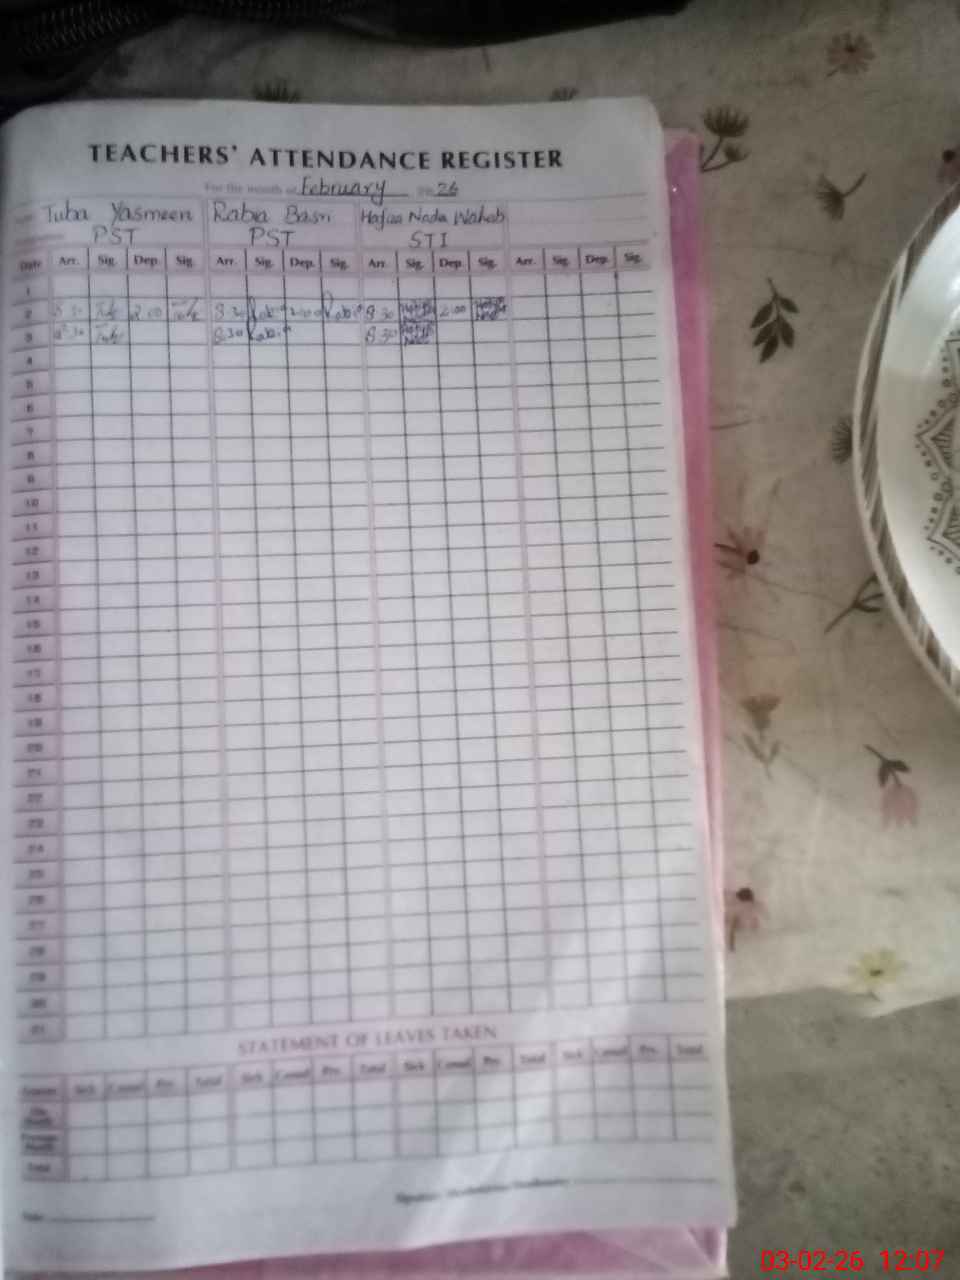 TEACHERS' ATTENDANCE REGISTER
For the month of February 20 26
Tuba Yasmeen Rabia Basri Hafsa Nada Wahab
PST PST STI
Date Arr. Sig. Dep. Sig. Arr. Sig. Dep. Sig. Arr. Sig. Dep. Sig. Arr. Sig. Dep. Sig.
1
2 8 30 Tuba 2 00 Tuba 8 30 Rabia 2:00 Rabia 8 30 Hafsa Nada 2:00 Hafsa Nada
3 8:30 Tuba 8:30 Rabia 8 30 Hafsa Nada
4
5
6
7
8
9
10
11
12
13
14
15
16
17
18
19
20
21
22
23
24
25
26
27
28
29
30
31
STATEMENT OF LEAVES TAKEN
Sick Casual Prv. Total Sick Casual Prv. Total Sick Casual Prv. Total Sick Casual Prv. Total
Total
Date
03-02-26 12:07